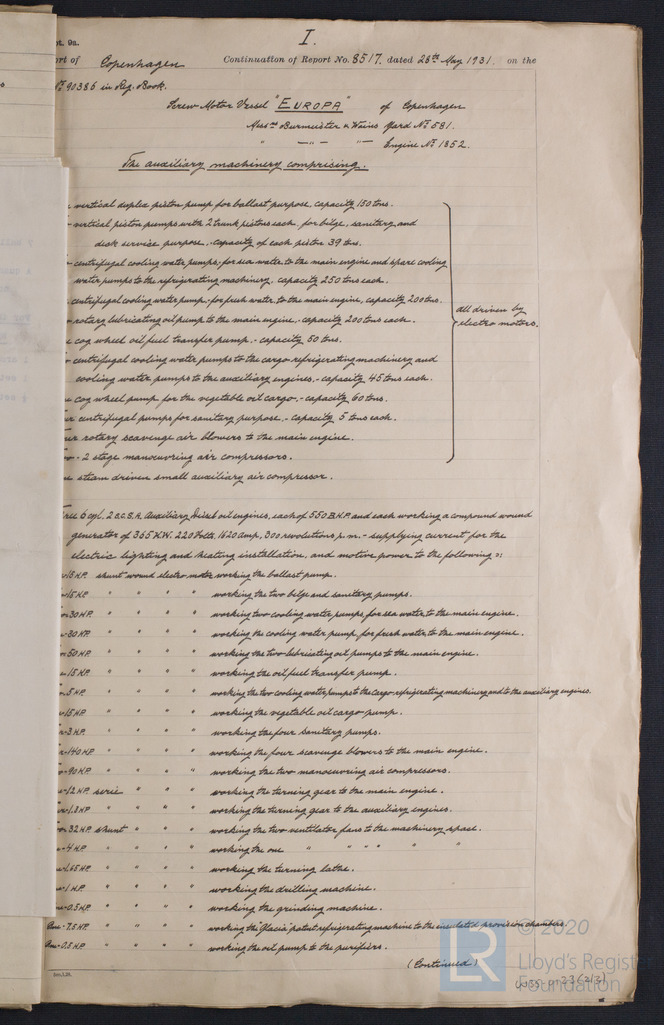 I.
pt. 9a.
ort of Copenhagen Continuation of Report No. 8517. dated 28th May 1931. on the
No. 90386 in Reg. Book.
Screw Motor Vessel "EUROPA" of Copenhagen
Messrs Burmeister & Wains Yard No. 581.
" —"— "— Engine No. 1852.
The auxiliary machinery comprising.
vertical duplex piston pump for ballast purpose, capacity 150 tons.
vertical piston pumps with 2 trunk pistons each, for bilge, sanitary and
deck service purpose,- capacity of each piston 39 tons.
centrifugal cooling water pumps,- for sea water to the main engine and spare cooling
water pumps to the refrigerating machinery, capacity 250 tons each.
centrifugal cooling water pump,- for fresh water, to the main engine, capacity 200 tons.
rotary lubricating oil pump to the main engine,- capacity 200 tons each.
cog wheel oil fuel transfer pump,- capacity 50 tons.
centrifugal cooling water pumps to the cargo refrigerating machinery and
cooling water pumps to the auxiliary engines,- capacity 45 tons each.
cog wheel pump for the vegetable oil cargo,- capacity 60 tons.
ur centrifugal pumps for sanitary purpose,- capacity 5 tons each.
ur rotary scavenge air blowers to the main engine.
- 2 stage manoeuvring air compressors.
all driven by
electro motors.
e steam driven small auxiliary air compressor.
ree 6 cyl. 2 S.C.S.A. Auxiliary Diesel oil engines, each of 550 B.H.P. and each working a compound wound
generator of 365 K.W. 220 Volts, 1620 Amp, 300 revolutions p.m.- supplying current for the
electric lighting and heating installation, and motive power to the following:
-15 H.P. shunt wound electro motor working the ballast pump.
-15 H.P. " " " " working the two bilge and sanitary pumps.
-30 H.P. " " " " working two cooling water pumps, for sea water to the main engine.
-30 H.P. " " " " working the cooling water pump for fresh water to the main engine.
-50 H.P. " " " " working the two lubricating oil pumps to the main engine.
-15 H.P. " " " " working the oil fuel transfer pump.
-5 H.P. " " " " working the two cooling water pumps to the cargo refrigerating machinery and to the auxiliary engines.
-15 H.P. " " " " working the vegetable oil cargo pump.
-3 H.P. " " " " working the four sanitary pumps.
-140 H.P. " " " " working the four scavenge blowers to the main engine.
-90 H.P. " " " " working the two manoeuvring air compressors.
-12 H.P. serie " " " working the turning gear to the main engine.
H.P. " " " " working the turning gear to the auxiliary engines.
32 H.P. shunt " " " working the two ventilator fans to the machinery space.
-4 H.P. " " " " working the one " " " " " "
-1.65 H.P. " " " " working the turning lathe.
-1 H.P. " " " " working the drilling machine.
-0.5 H.P. " " " " working the grinding machine.
One-7.5 H.P. " " " " working the "Glacia" patent refrigerating machine to the insulated provision chambers.
One-0.5 H.P. " " " " working the oil pump to the purifiers.
(Continued)
LR © 2020
Lloyd's Register
Foundation